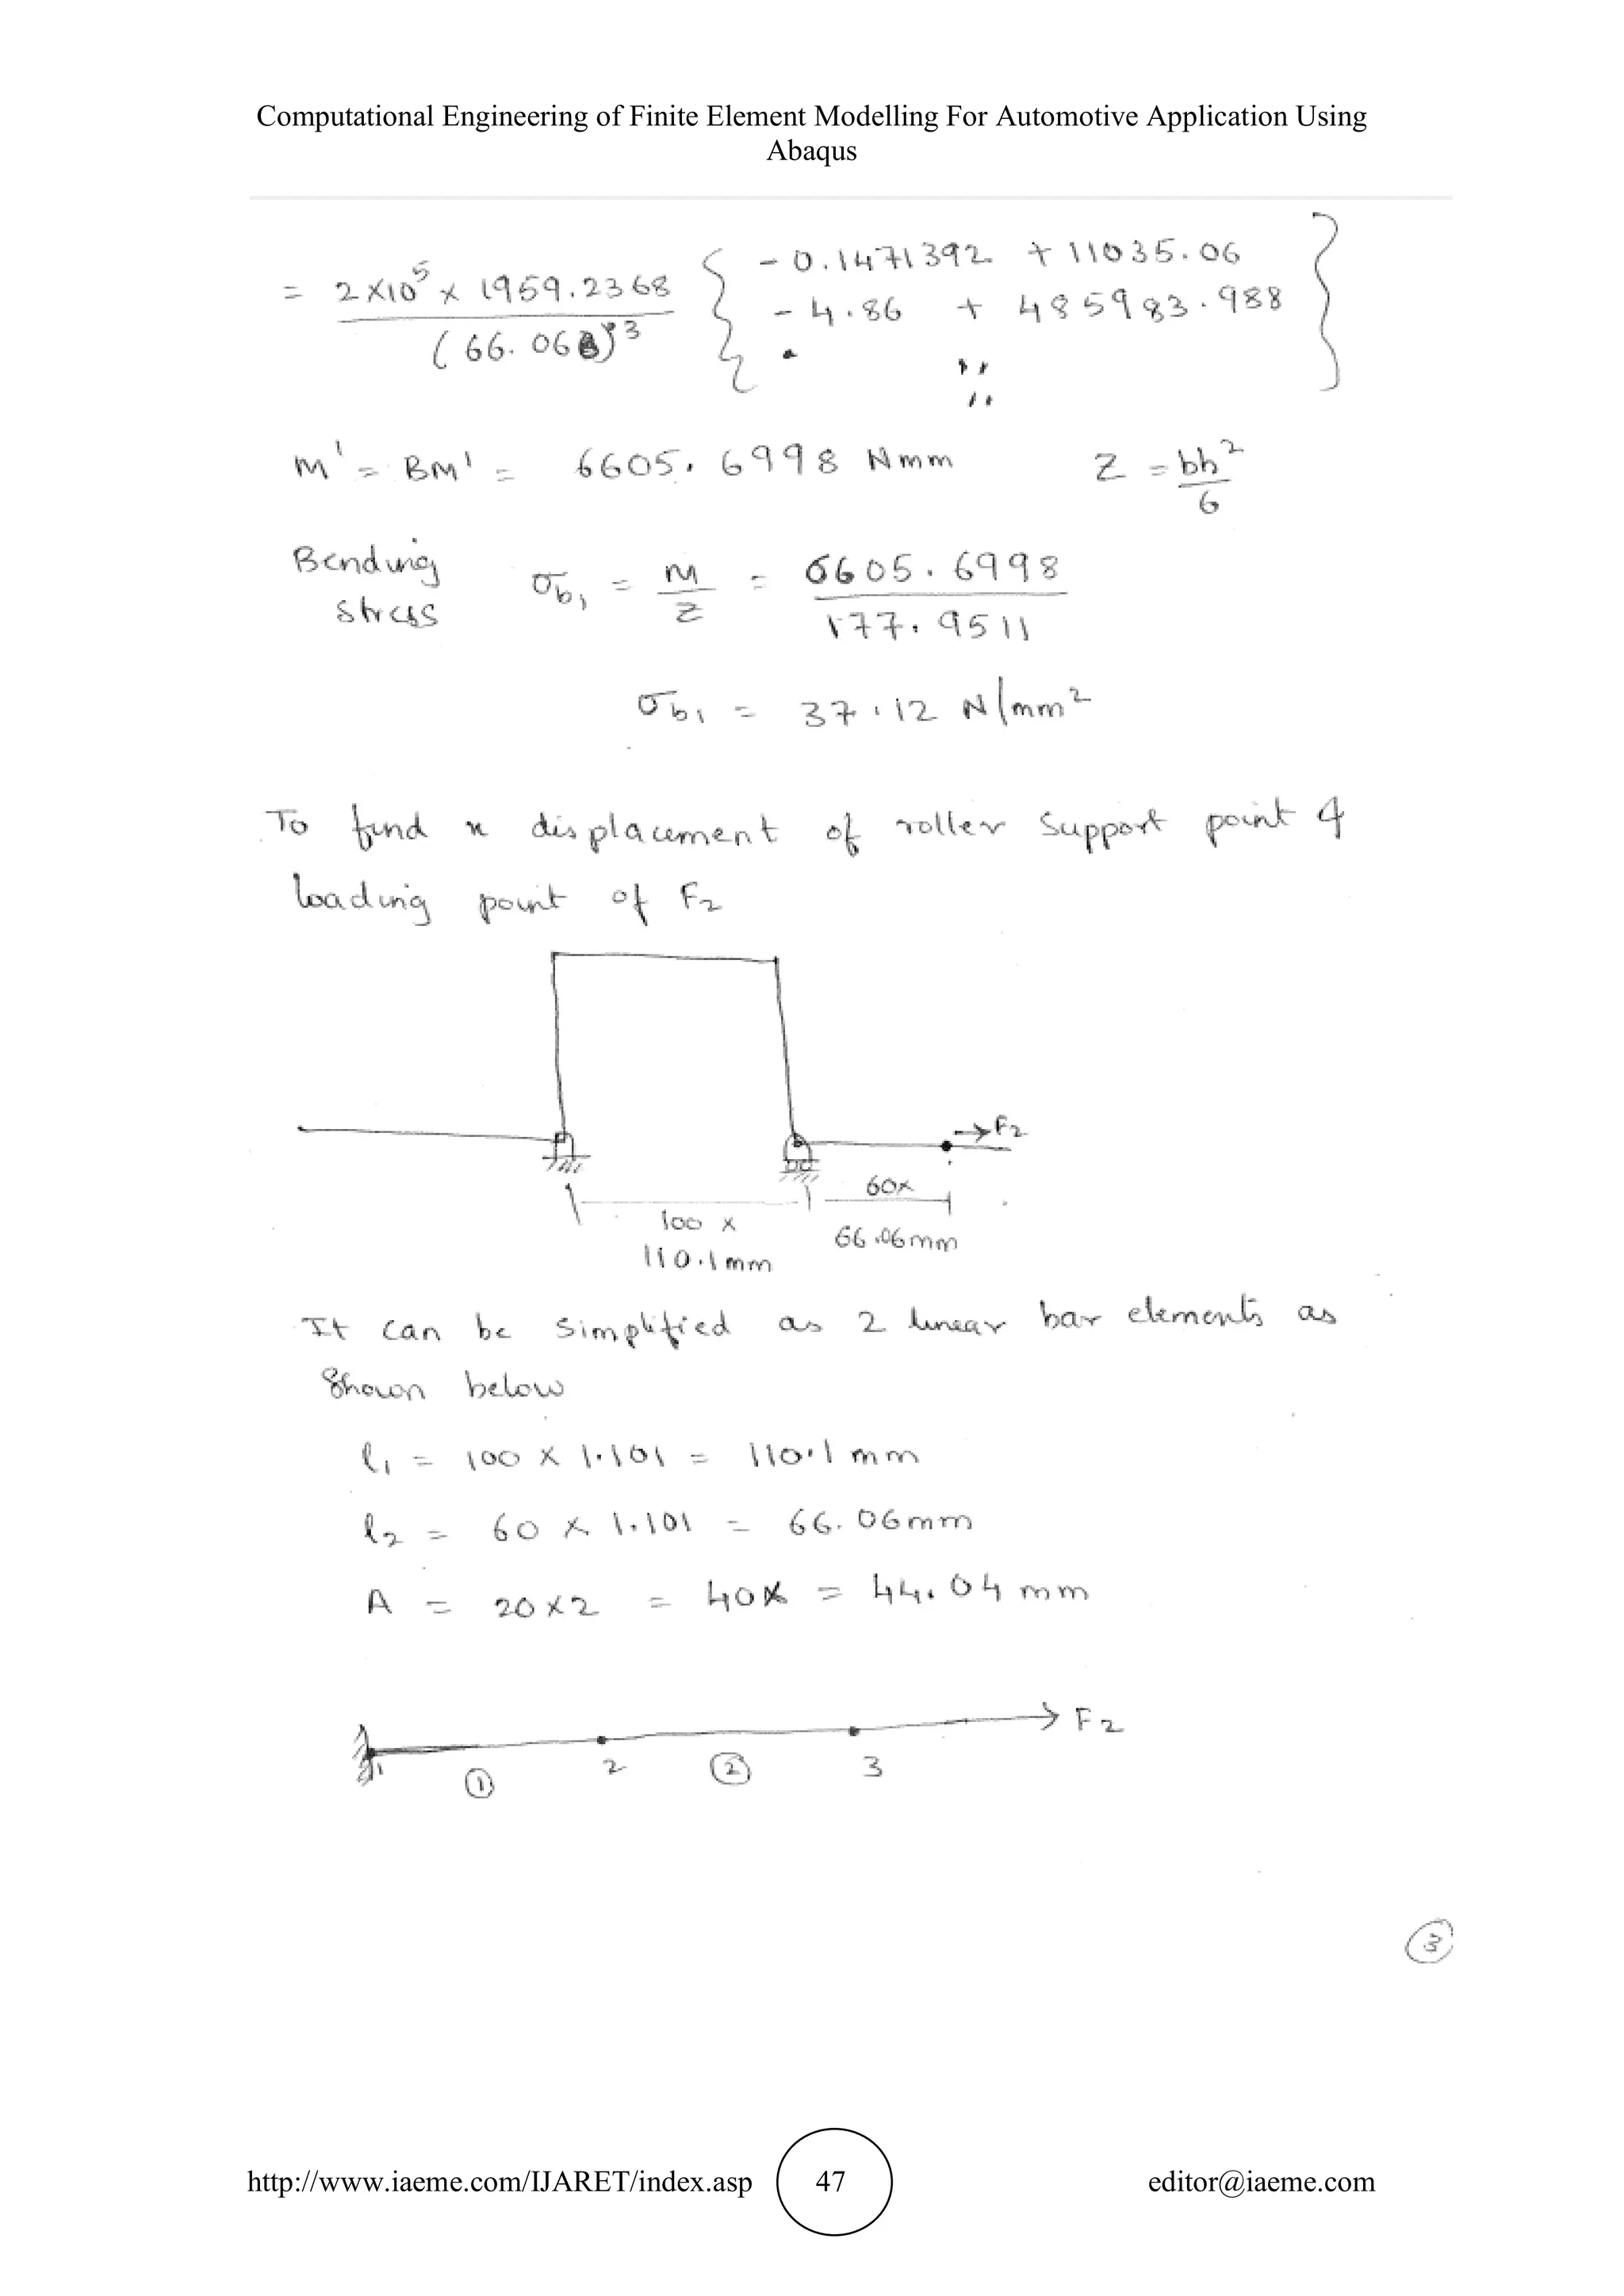 Computational Engineering of Finite Element Modelling For Automotive Application Using
Abaqus
= 2×10⁵ × 1959.2368 / (66.068)³ { - 0.1471392 + 11035.06
- 4.86 + 485983.988 }
M' = BM' = 6605.6998 Nmm Z = bh²/6
Bending stress σb₁ = M/Z = 6605.6998 / 177.9511
σb₁ = 37.12 N/mm²
To find x displacement of roller support point &
loading point of F₂
→F₂
60x
100 x
66.06mm
110.1mm
It can be simplified as 2 linear bar elements as
shown below
l₁ = 100 × 1.101 = 110.1 mm
l₂ = 60 × 1.101 = 66.06mm
A = 20×2 = 40x = 44.04 mm
→ F₂
1 ① 2 ② 3
③
http://www.iaeme.com/IJARET/index.asp 47 editor@iaeme.com